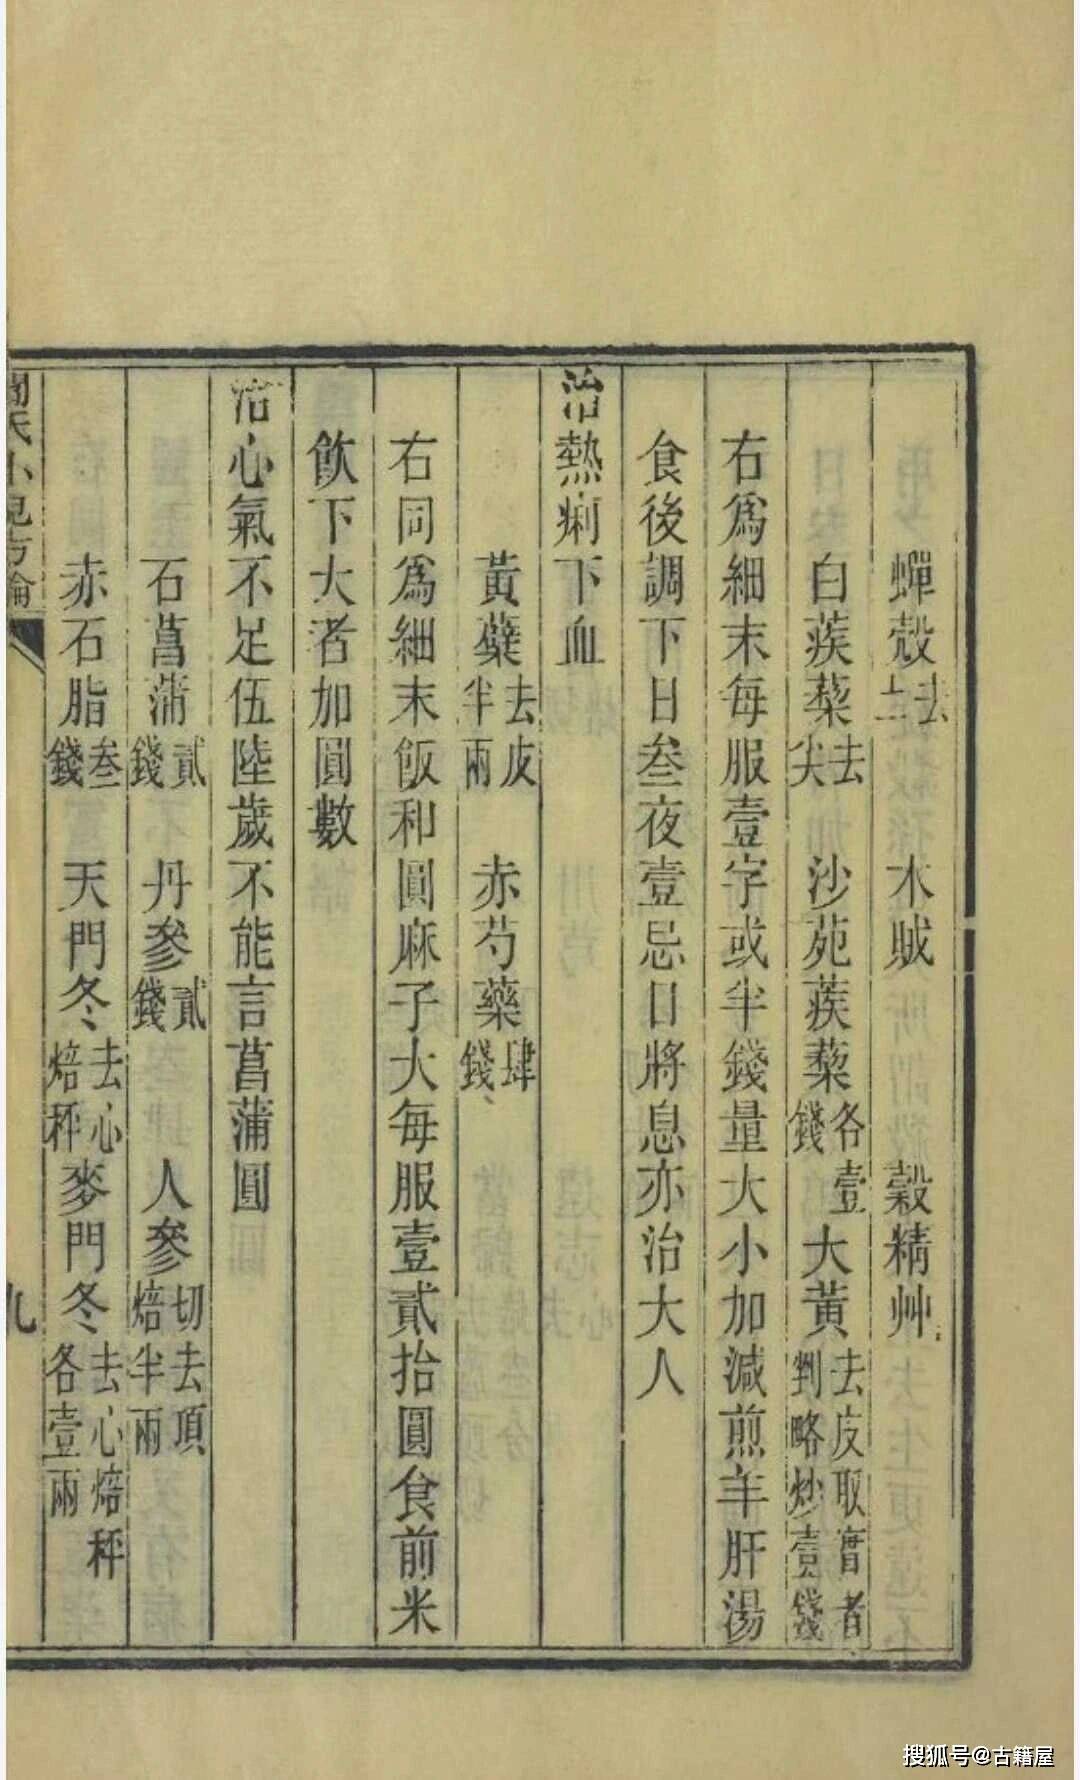 蟬殼去土　木賊　穀精艸
白蒺蔾去尖　沙苑蒺蔾各壹錢　大黃去皮取實者判略炒壹錢
右爲細末每服壹字或半錢量大小加減煎羊肝湯
食後調下日叁夜壹忌口將息亦治大人
治熱痢下血
黃蘗去皮半兩　赤芍藥肆錢
右同爲細末飯和圓麻子大每服壹貳拾圓食前米
飲下大者加圓數
治心氣不足伍陸歲不能言菖蒲圓
石菖蒲貳錢　丹參貳錢　人參切去頂焙半兩
赤石脂叁錢　天門冬去心焙秤　麥門冬去心焙秤各壹兩
閻氏小兒方論
九
搜狐号@古籍屋